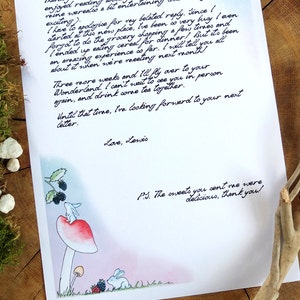 enjoyed reading
some weredo's so entertaining
exciting.)
I have to apologise for my belated reply. Since I
started at this new place, I've been so very busy I even
forgot to do the grocery shopping a few times and
I ended up eating cereal for dinner! But it's been
an amazing experience so far. I will tell you all
about it when we're meeting next month!
Three more week and I'll fly over to your
Wonderland. I can't wait to see you in person
again, and drink some tea together.
Until that time, I'm looking forward to your next
letter.
Love, Lewis
P.S. The sweets you sent me were
delicious, thank you!